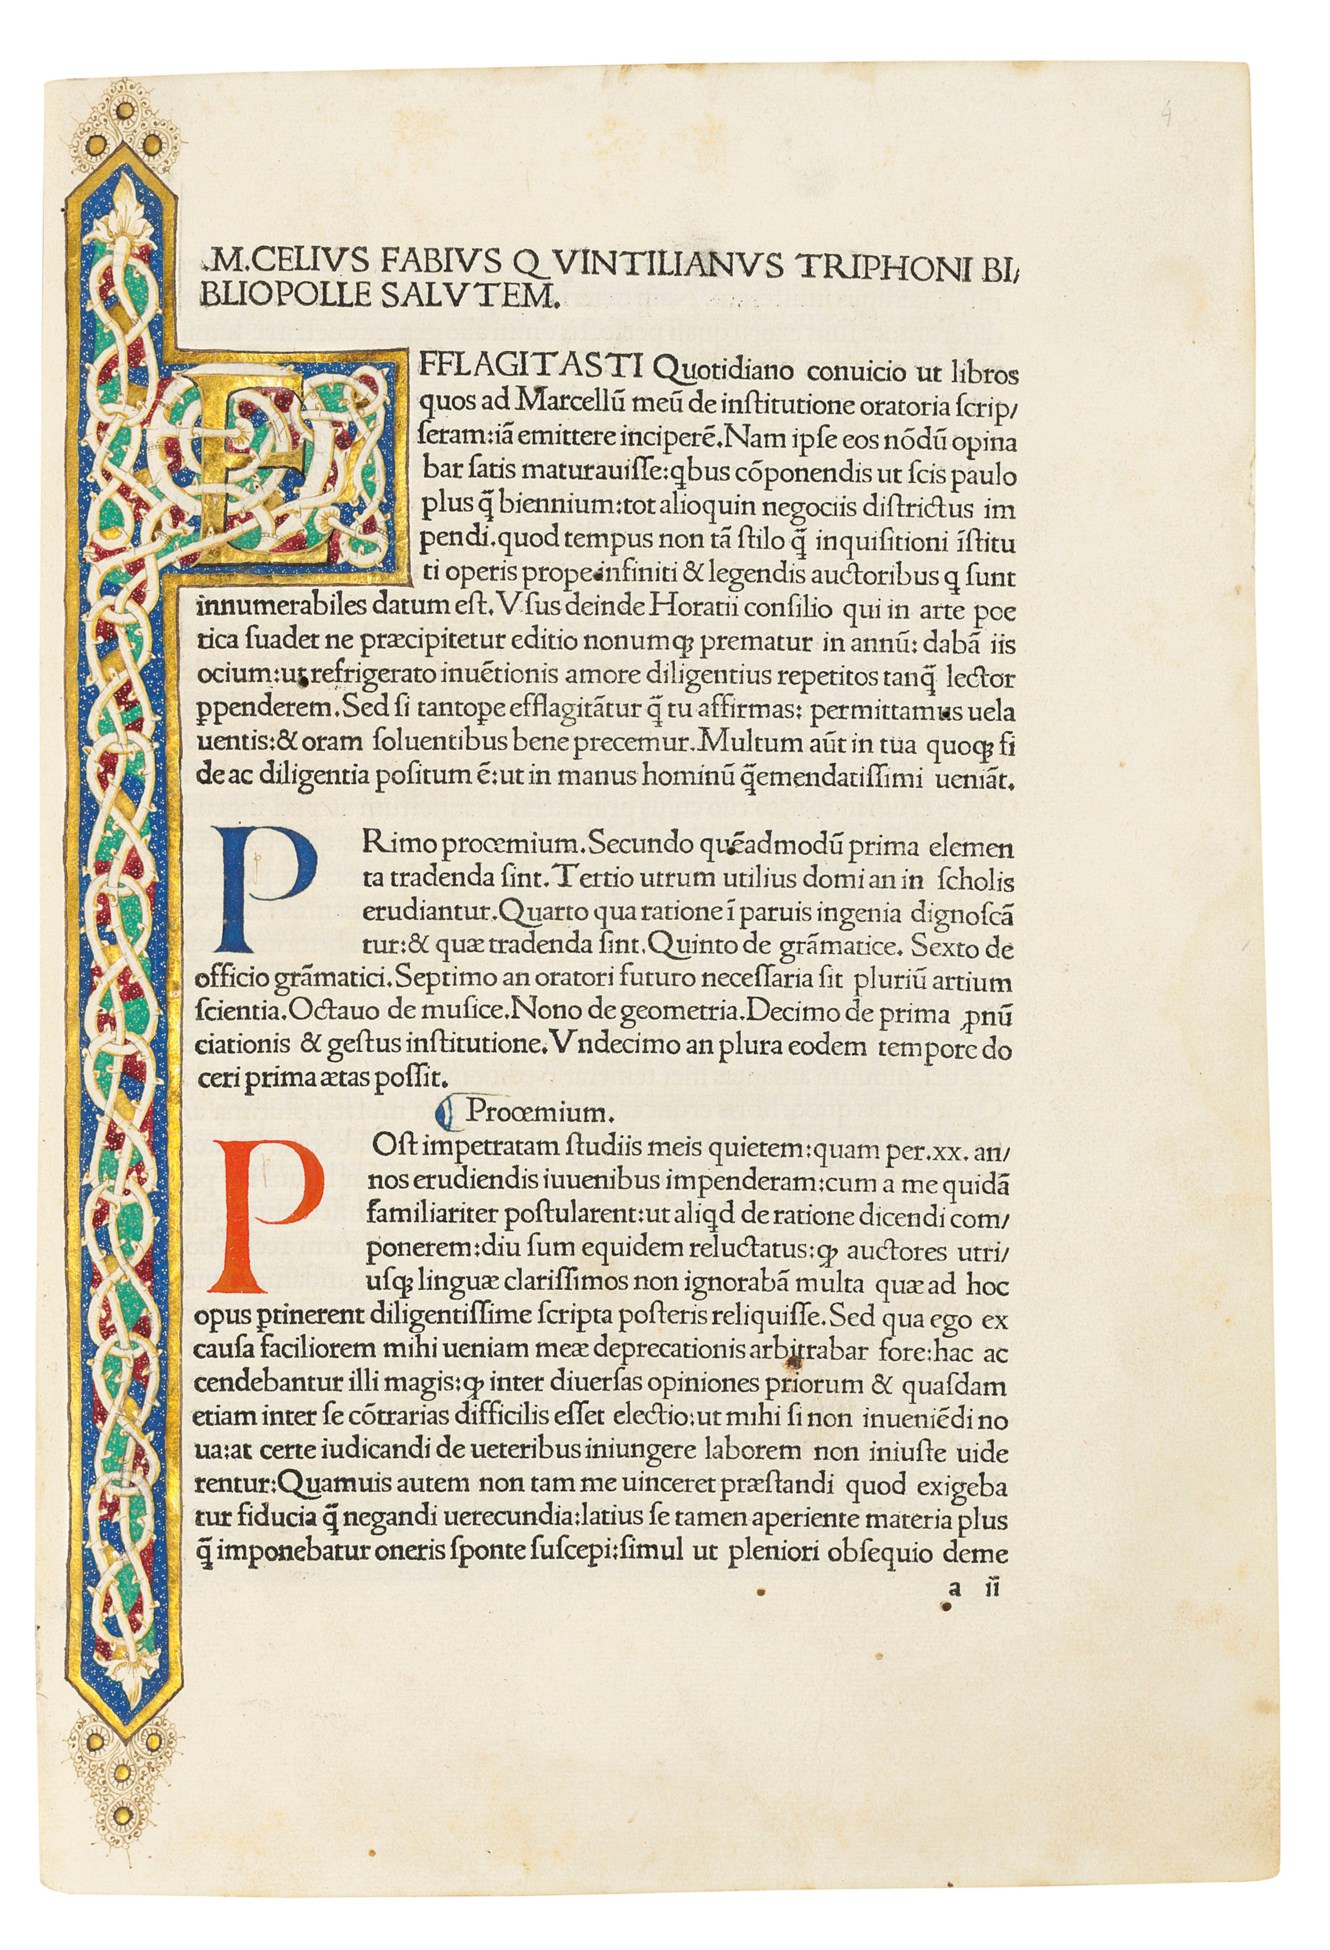 4
.M.CELIVS FABIVS Q VINTILIANVS TRIPHONI BI/
BLIOPOLLE SALVTEM.
EFFLAGITASTI Quotidiano conuicio ut libros
quos ad Marcellū meū de inſtitutione oratoria ſcrip/
ſeram:iā emittere inciperē.Nam ipſe eos nōdū opina
bar ſatis maturauiſſe:qbus cōponendis ut ſcis paulo
plus q̄ biennium:tot alioquin negociis diſtrictus im
pendi.quod tempus non tā ſtilo q̄ inquiſitioni īſtitu
ti operis prope infiniti & legendis auctoribus q ſunt
innumerabiles datum eſt.Vſus deinde Horatii conſilio qui in arte poe
tica ſuadet ne præcipitetur editio nonumqꝫ prematur in annū: dabā iis
ocium:ut refrigerato inuētionis amore diligentius repetitos tanq̄ lector
ꝑpenderem.Sed ſi tantope efflagitātur q̄ tu affirmas: permittamus uela
uentis:& oram ſoluentibus bene precemur.Multum aūt in tua quoqꝫ fi
de ac diligentia poſitum ē:ut in manus hominū q̄emendatiſſimi ueniāt.
PRimo procemium.Secundo quēadmodū prima elemen
ta tradenda ſint.Tertio utrum utilius domi an in ſcholis
erudiantur.Quarto qua ratione ī paruis ingenia dignoſcā
tur:& quæ tradenda ſint.Quinto de grāmatice. Sexto de
officio grāmatici.Septimo an oratori futuro neceſſaria ſit pluriū artium
ſcientia.Octauo de muſice.Nono de geometria.Decimo de prima ꝓnū
ciationis & geſtus inſtitutione.Vndecimo an plura eodem tempore do
ceri prima ætas poſſit.
Procemium.
POſt impetratam ſtudiis meis quietem:quam per.xx. an/
nos erudiendis iuuenibus impenderam:cum a me quidā
familiariter poſtularent:ut aliqd de ratione dicendi com/
ponerem:diu ſum equidem reluctatus:ꝙ auctores utri/
uſqꝫ linguæ clariſſimos non ignorabā multa quæ ad hoc
opus ꝑtinerent diligentiſſime ſcripta poſteris reliquiſſe.Sed qua ego ex
cauſa faciliorem mihi ueniam meæ deprecationis arbitrabar fore:hac ac
cendebantur illi magis:ꝙ inter diuerſas opiniones priorum & quaſdam
etiam inter ſe cōtrarias difficilis eſſet electio:ut mihi ſi non inueniēdi no
ua:at certe iudicandi de ueteribus iniungere laborem non iniuſte uide
rentur:Quamuis autem non tam me uinceret præſtandi quod exigeba
tur fiducia q̄ negandi uerecundia:latius ſe tamen aperiente materia plus
q̄ imponebatur oneris ſponte ſuſcepi:ſimul ut pleniori obſequio deme
a ii